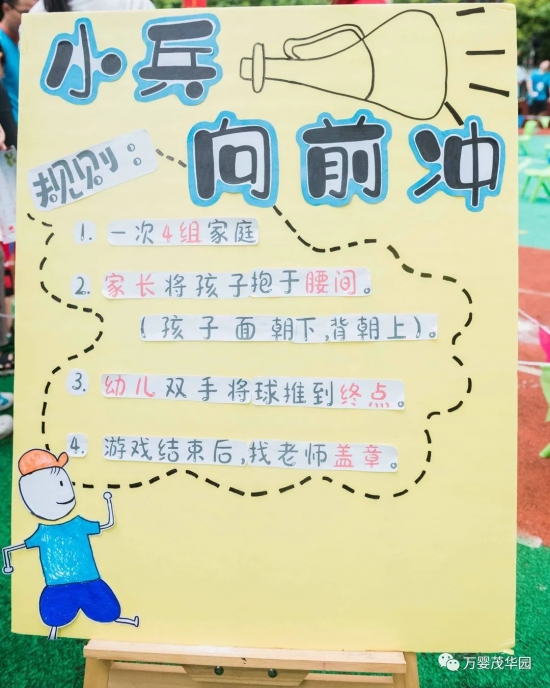 小兵
向前冲
规则：
1. 一次4组家庭
2. 家长将孩子抱于腰间。
（孩子面朝下,背朝上）。
3. 幼儿双手将球推到终点。
4. 游戏结束后,找老师盖章。
万婴茂华园